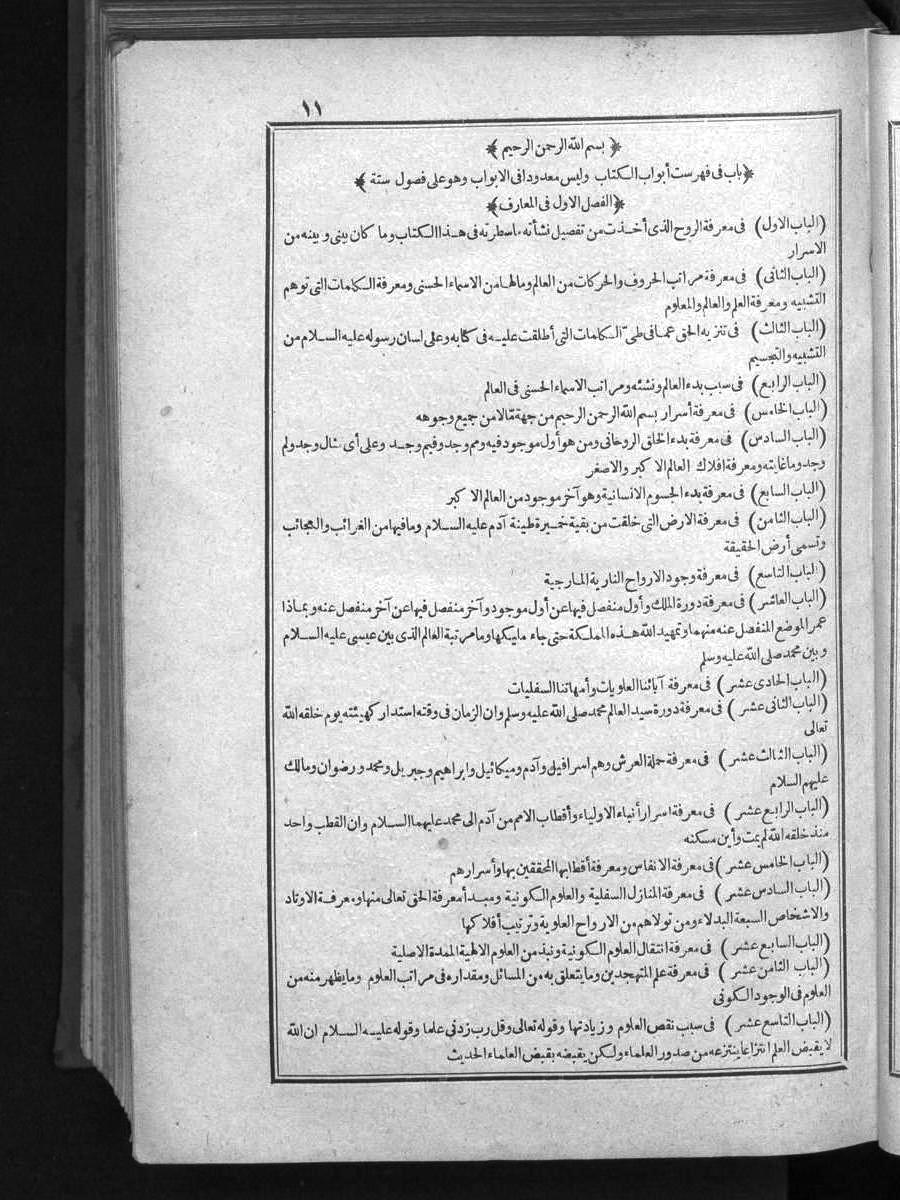 ١١
﴿ بسم الله الرحمن الرحيم ﴾
﴿ باب فى فهرست أبواب الكتاب وليس معدودا فى الابواب وهو على فصول ستة ﴾
﴿ الفصل الاول فى المعارف ﴾
(الباب الاول) فى معرفة الروح الذى أخذت من تفصيل نشأته ماسطرته فى هذا الكتاب وما كان بينى وبينه من
الاسرار
(الباب الثانى) فى معرفة مراتب الحروف والحركات من العالم ومالها من الاسماء الحسنى ومعرفة الكلمات التى توهم
التشبيه ومعرفة العلم والعالم والمعلوم
(الباب الثالث) فى تنزيه الحق عما فى طىّ الكلمات التى أطلقت عليه فى كتابه وعلى لسان رسوله عليه السلام من
التشبيه والتجسيم
(الباب الرابع) فى سبب بدء العالم ونشئه ومراتب الاسماء الحسنى فى العالم
(الباب الخامس) فى معرفة أسرار بسم الله الرحمن الرحيم من جهة مّا لا من جميع وجوهه
(الباب السادس) فى معرفة بدء الخلق الروحانى ومن هو أول موجود فيه ومم وجد وفيم وجد وعلى أى مثال وجد ولم
وجد وما غايته ومعرفة افلاك العالم الاكبر والاصغر
(الباب السابع) فى معرفة بدء الجسوم الانسانية وهو آخر موجود من العالم الاكبر
(الباب الثامن) فى معرفة الارض التى خلقت من بقية خميرة طينة آدم عليه السلام وما فيها من الغرائب والعجائب
وتسمى أرض الحقيقة
(الباب التاسع) فى معرفة وجود الارواح النارية المارجية
(الباب العاشر) فى معرفة دورة الملك وأول منفصل فيها عن أول موجود وآخر منفصل فيها عن آخر منفصل عنه وبماذا
عمر الموضع المنفصل عنه منهما وتمهيد الله هذه المملكة حتى جاء مليكها وما مرتبة العالم الذى بين عيسى عليه السلام
وبين محمد صلى الله عليه وسلم
(الباب الحادى عشر) فى معرفة آبائنا العلويات وأمهاتنا السفليات
(الباب الثانى عشر) فى معرفة دورة سيد العالم محمد صلى الله عليه وسلم وان الزمان فى وقته استدار كهيئته يوم خلقه الله
تعالى
(الباب الثالث عشر) فى معرفة حملة العرش وهم اسرافيل وآدم وميكائيل وابراهيم وجبريل ومحمد ورضوان ومالك
عليهم السلام
(الباب الرابع عشر) فى معرفة اسرار أنبياء الاولياء وأقطاب الامم من آدم الى محمد عليهما السلام وان القطب واحد
منذ خلقه الله لم يمت وأين مسكنه
(الباب الخامس عشر) فى معرفة الانفاس ومعرفة أقطابها المحققين بها وأسرارهم
(الباب السادس عشر) فى معرفة المنازل السفلية والعلوم الكونية ومبدأ معرفة الحق تعالى منها ومعرفة الاوتاد
والاشخاص السبعة البدلاء ومن تولاهم من الارواح العلوية وترتيب أفلاكها
(الباب السابع عشر) فى معرفة انتقال العلوم الكونية ونبذ من العلوم الالهية الممدة الاصلية
(الباب الثامن عشر) فى معرفة علم المتهجدين وما يتعلق به من المسائل ومقداره فى مراتب العلوم وما يظهر منه من
العلوم فى الوجود الكونى
(الباب التاسع عشر) فى سبب نقص العلوم وزيادتها وقوله تعالى وقل رب زدنى علما وقوله عليه السلام ان الله
لا يقبض العلم انتزاعا ينتزعه من صدور العلماء ولكن يقبضه بقبض العلماء الحديث